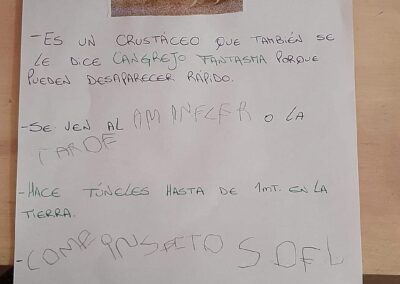 -ES UN CRUSTÁCEO QUE TAMBIÉN SE
LE DICE CANGREJO FANTASMA PORQUE
PUEDEN DESAPARECER RÁPIDO.
-SE VEN AL AMANECER O LA
TARDE
-HACE TÚNELES HASTA DE 1MT. EN LA
TIERRA.
-COME INSECTOS DEL